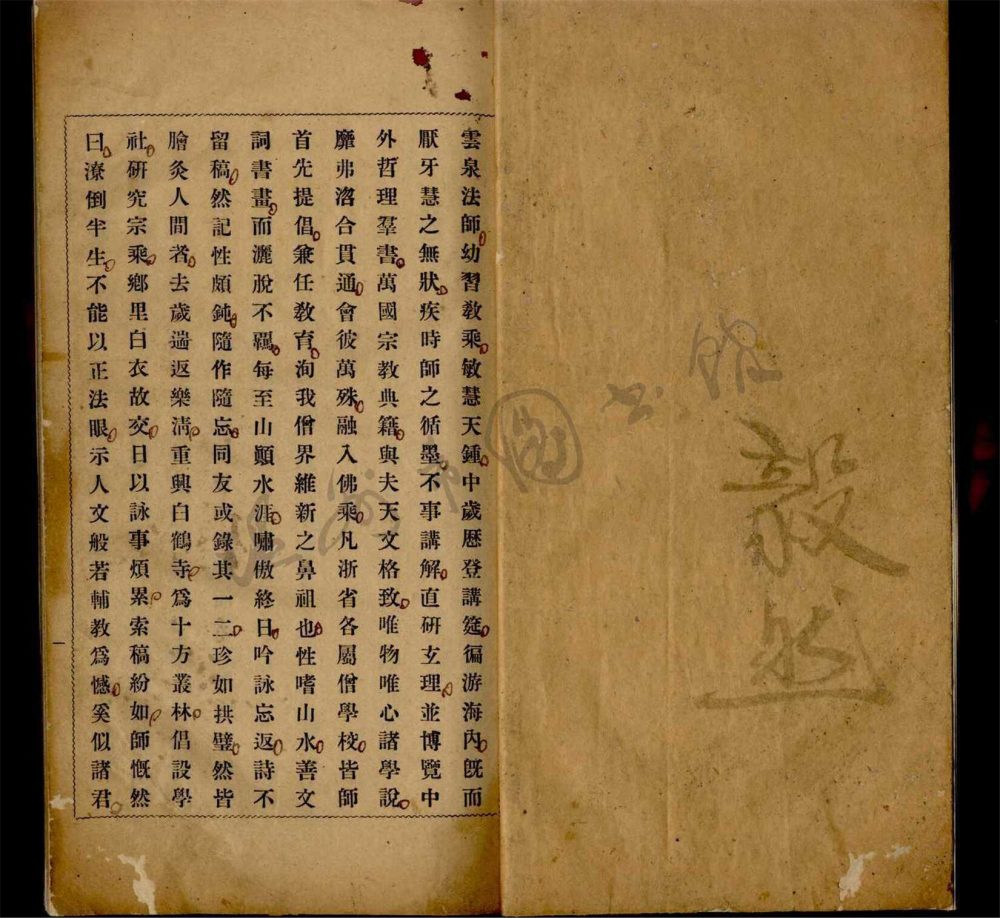 毅然
雲泉法師幼習教乘敏慧天鍾中歲歷登講筵徧游海內既而
厭牙慧之無狀疾時師之循墨不事講解直研玄理並博覽中
外哲理羣書萬國宗教典籍與夫天文格致唯物唯心諸學說
靡弗洛合貫通會彼萬殊融入佛乘凡浙省各屬僧學校皆師
首先提倡兼任教育洵我僧界維新之鼻祖也性嗜山水善文
詞書畫而灑脫不羈每至山顚水涯嘯傲終日吟詠忘返詩不
留稿然記性頗鈍隨作隨忘同友或錄其一二珍如拱璧然皆
膾灸人間者去歲遄返樂淸重興白鶴寺爲十方叢林倡設學
社硏究宗乘鄉里白衣故交日以詠事煩累索稿紛如師慨然
曰潦倒半生不能以正法眼示人文般若輔教爲憾奚似諸君
一
温州市圖书館